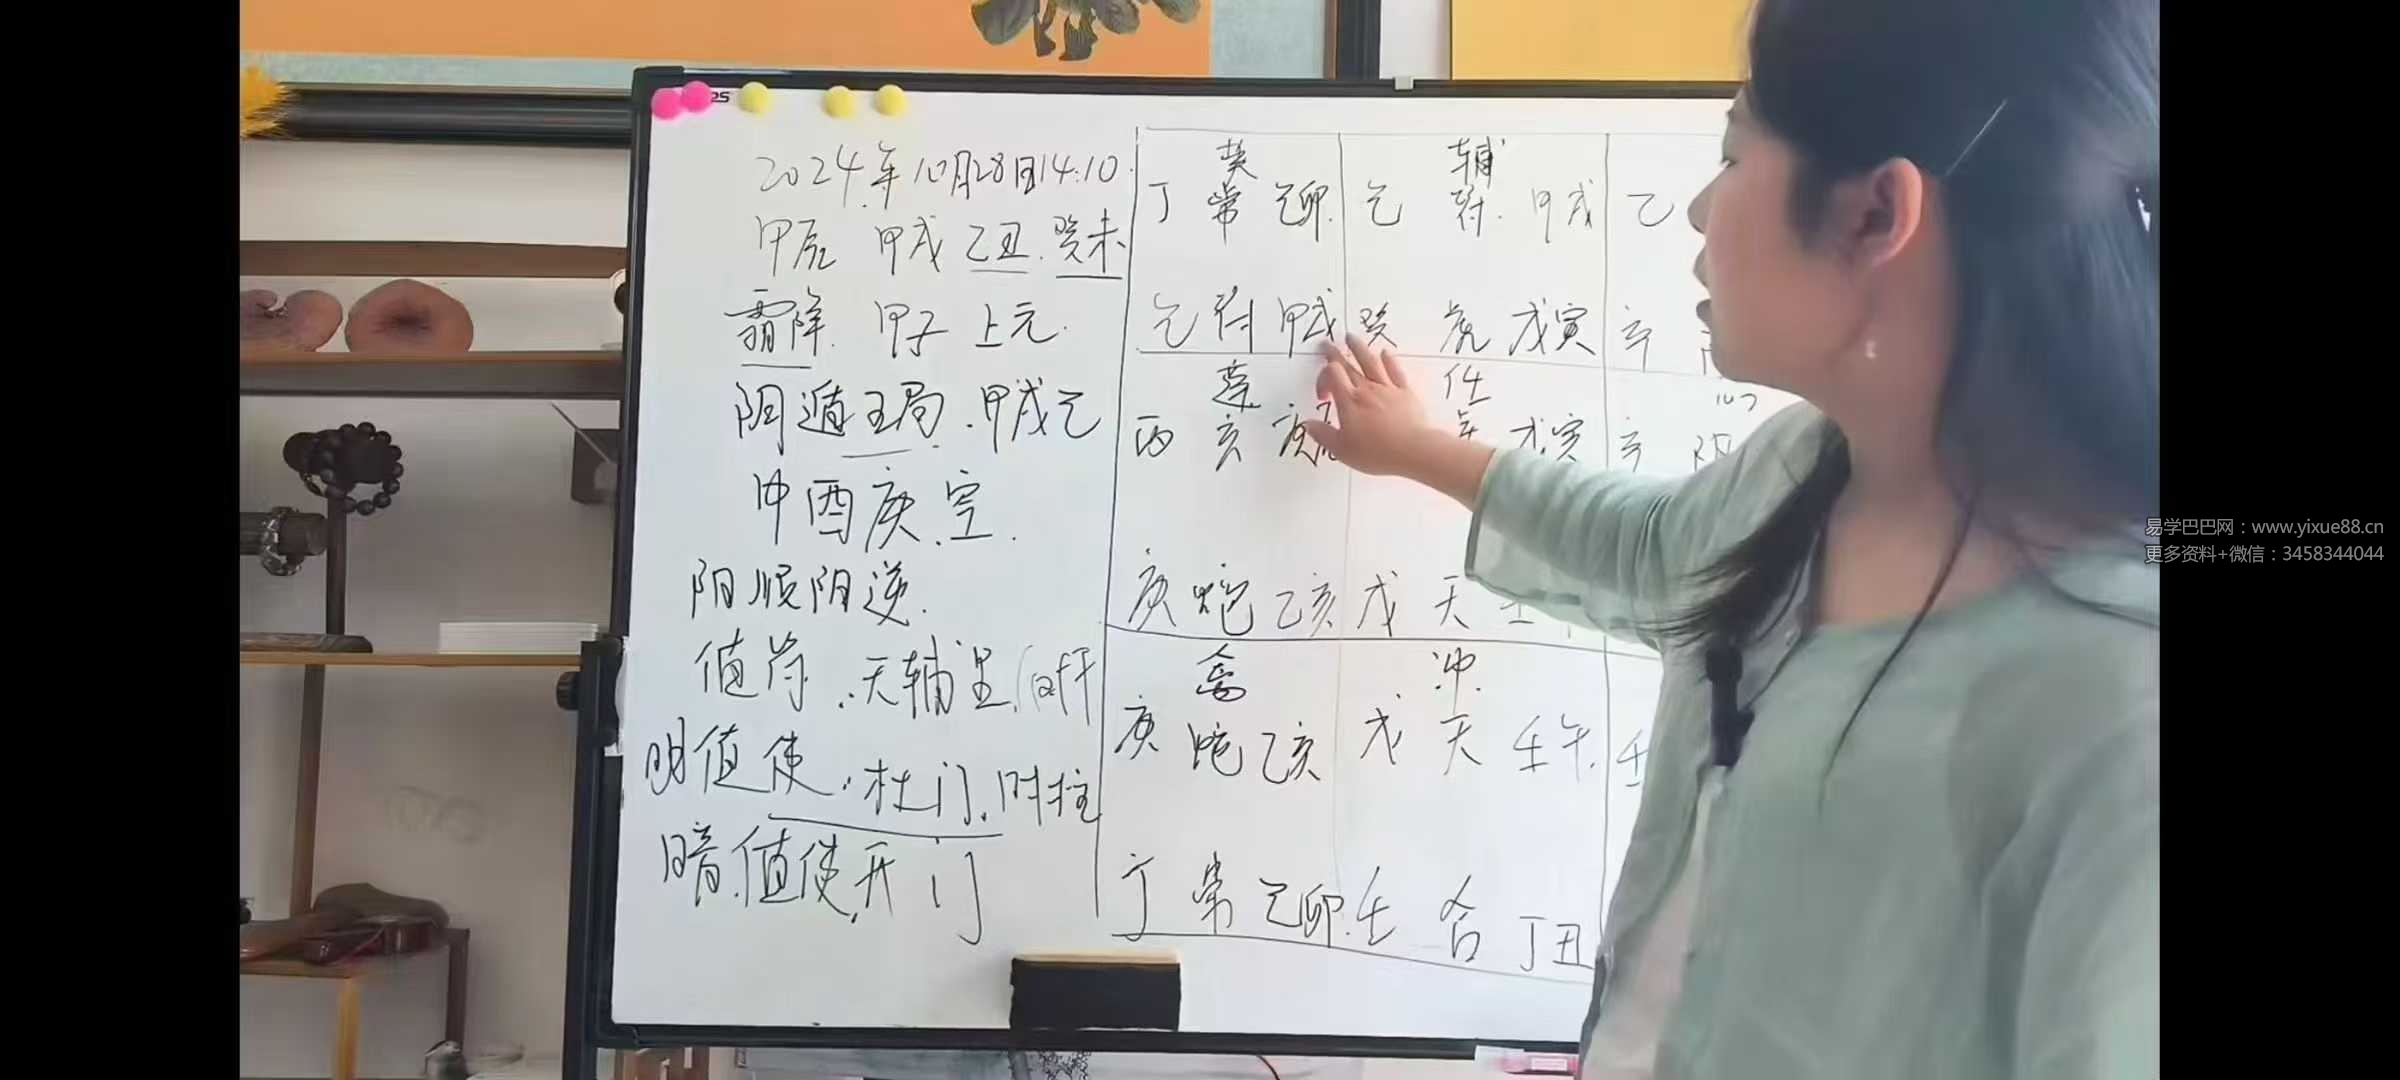 2024年10月28日14:10
甲辰 甲戌 乙丑 癸未
霜降 甲子 上元
阴遁五局 甲戌己
甲申庚 空
阳顺阴逆
值符 天辅星 时干
明值使 杜门 时柱
暗值使 开门
英 辅
丁 常 己卯 己 符 甲戌 乙
己 符 甲戌 癸 虎 戊寅 辛
蓬 任
丙 玄 戊寅 辛 阴
庚 蛇 乙亥 戊 天 壬午
禽 冲
庚 蛇 乙亥 戊 天 壬午 壬
丁 常 己卯 壬 合 丁丑
易学巴巴网：www.yixue88.cn
更多资料+微信：3458344044